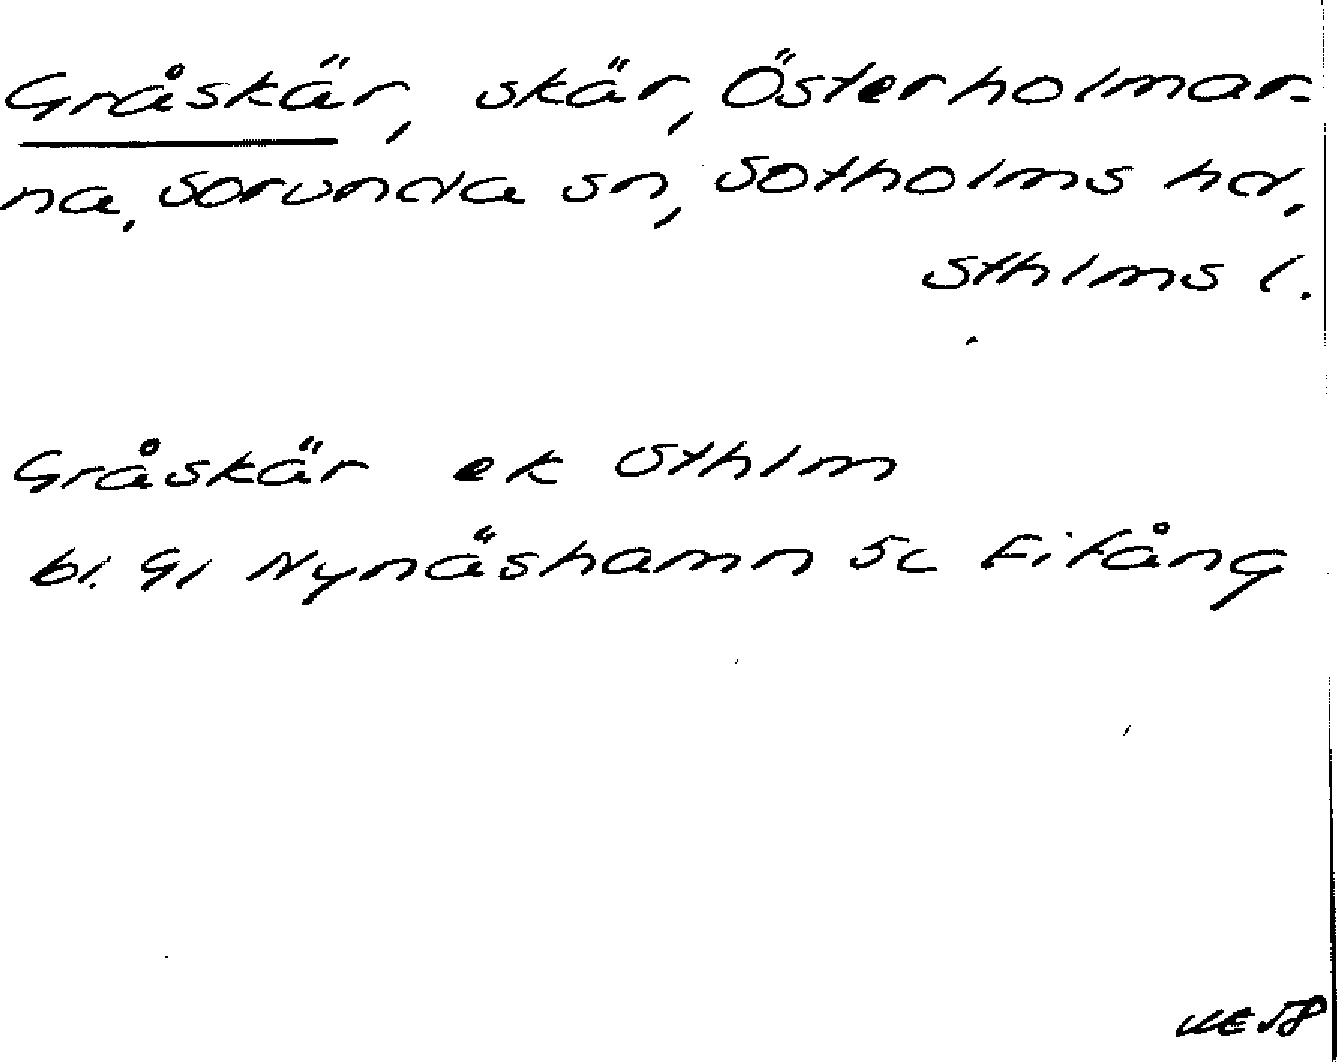 Gråskär, skär, Österholmar-
na, Sorunda sn, Sotholms hd,
Sthlms l.
Gråskär ek Sthlm
bl. 91 Nynäshamn 5c Fifång